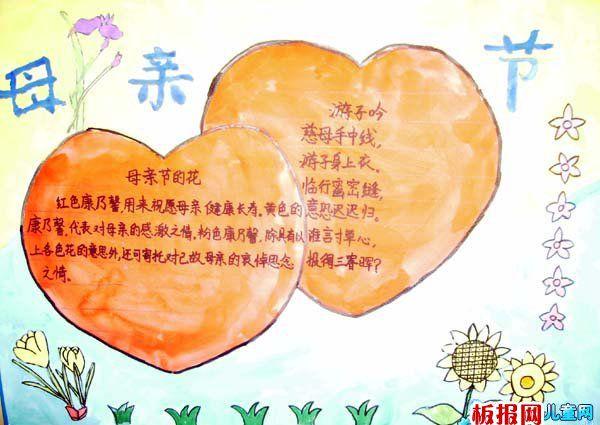 母亲节
母亲节的花
红色康乃馨,用来祝愿母亲健康长寿。黄色的
康乃馨,代表对母亲的感激之情。粉色康乃馨,除具有以
上各色花的意思外,还可寄托对已故母亲的哀悼思念
之情。
游子吟
慈母手中线,
游子身上衣。
临行密密缝,
意恐迟迟归。
谁言寸草心,
报得三春晖?
板报网儿童网